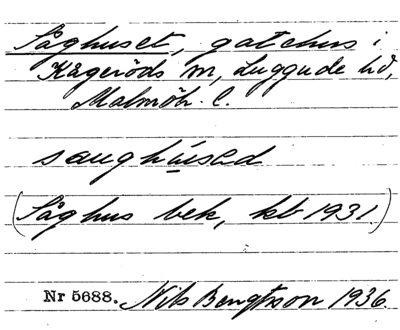 Såghuset, gatehus i
Kågeröds sn, Luggude hd,
Malmöh. l.
saughúsəd
(Såghus bek, kb 1931.)
Nr 5688. Nils Bengtsson 1936.